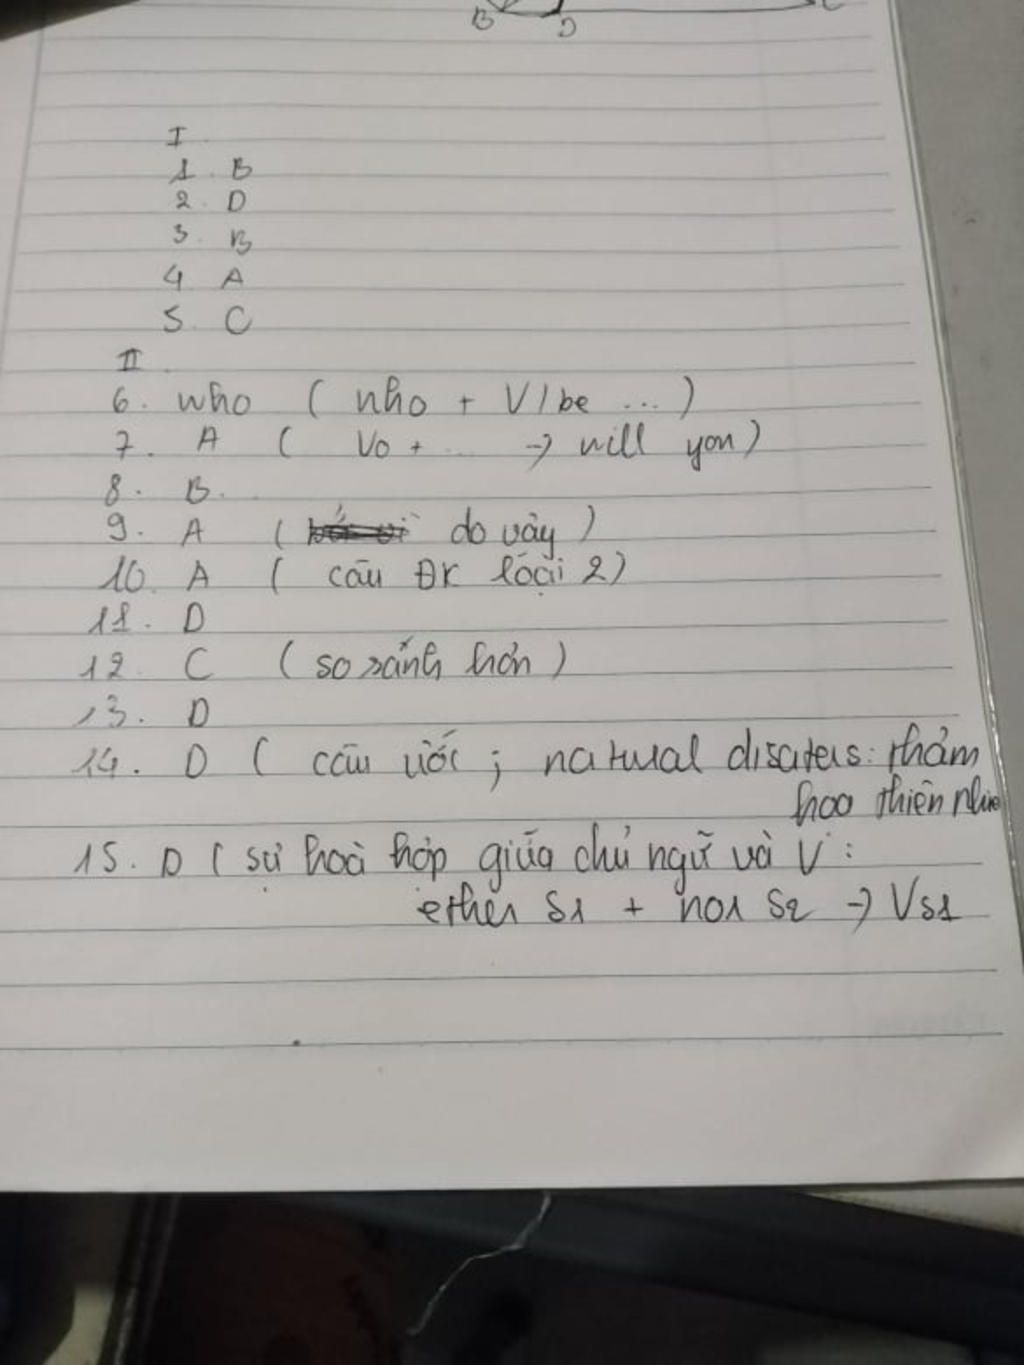 B D C
I.
1. B
2. D
3. B
4 A
5. C
II.
6. who ( who + V/be ... )
7. A ( Vo + ... → will you )
8. B.
9. A ( do vậy )
10. A ( câu ĐK loại 2)
11. D
12. C ( so sánh hơn )
13. D
14. D ( câu ước ; natural disaters: thảm
hoạ thiên nhiê
15. D ( sự hoà hợp giữa chủ ngữ và V :
either S1 + nor S2 → Vs1